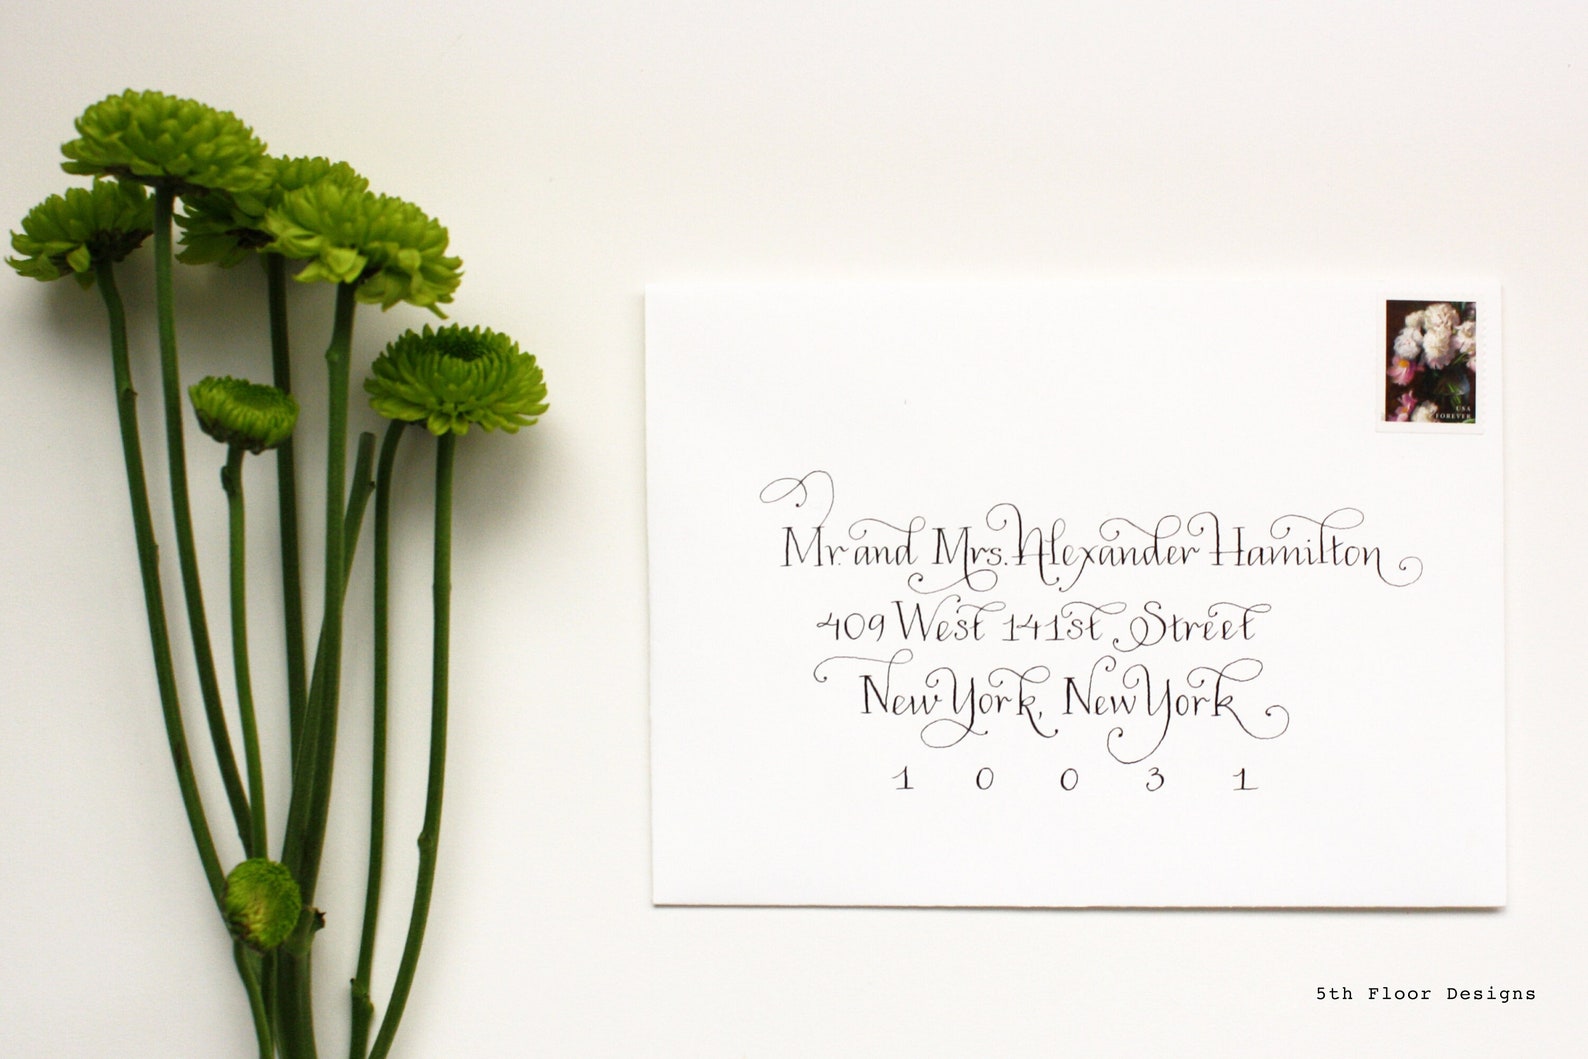 USA
FOREVER
Mr. and Mrs. Alexander Hamilton
409 West 141st Street
New York, New York
1 0 0 3 1
5th Floor Designs